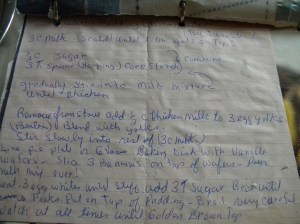 3C Milk Scald until film gets on Top
3/4 C Sugar
3 T. spoons (Heaping) Corn Starch
Combine
gradually Stir into Milk mixture
until thicken
Remove from stove add 1 C thicken milk to 3 egg yolks
(Beaten) Blend with yolks.
Stir slowly into rest of (3C milk)
Line plate in Glass Baking Dish with Vanilla
wafers - Slice 3 Bananas on top of wafers - Pour
milk mix over!
Beat 3 egg whites until stiff add 3T Sugar Beat until
Peaks. Put on Top of Pudding - Broil, very careful
Watch at all times until Golden Brown top